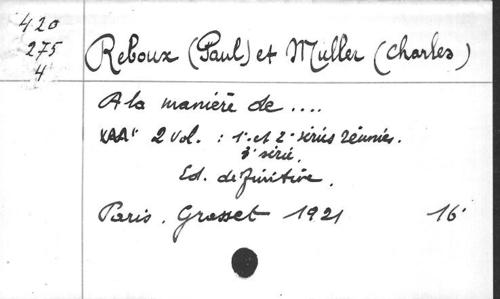 420
275
4
Reboux (Paul) et Muller (Charles)
A la manière de ....
2 vol. : 1e et 2e séries réunies.
3e série.
Ed. définitive.
Paris. Grasset 1921 16°